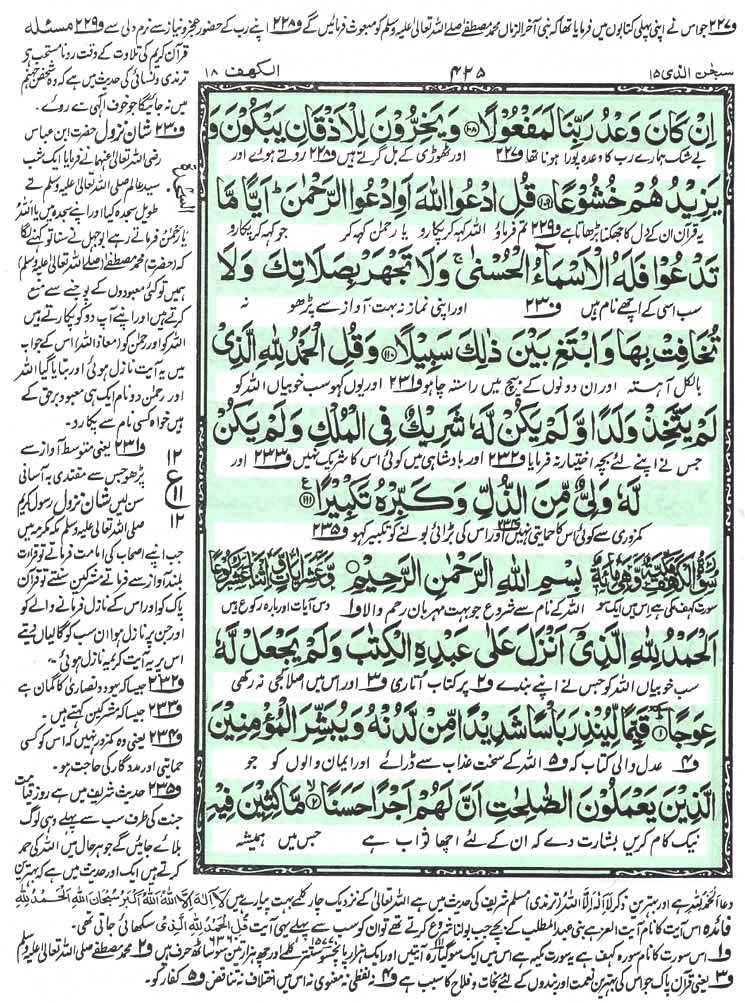 و۲۲۷ جو اس نے اپنی پہلی کتابوں میں فرمایا تھا کہ نبی آخر الزماں محمد مصطفٰے صلی اللہ تعالیٰ علیہ وسلم کو مبعوث فرمائیں گے و۲۲۸ اپنے رب کے حضور عجز و نیاز سے نرم دلی سے و۲۲۹ مسئلہ
سبحٰن الذی ۱۵
۴۲۵
الکھف ۱۸
اِنْ كَانَ وَعْدُ رَبِّنَا لَمَفْعُوْلًا ۝۱۰۸ وَيَخِرُّوْنَ لِلْاَذْقَانِ يَبْكُوْنَ وَ
بے شک ہمارے رب کا وعدہ پورا ہونا تھا و۲۲۷ اور ٹھوڑی کے بل گرتے ہیں و۲۲۸ روتے ہوئے اور
يَزِيْدُهُمْ خُشُوْعًا ۝۱۰۹ قُلِ ادْعُوا اللّٰهَ اَوِ ادْعُوا الرَّحْمٰنَ ؕ اَيًّا مَّا
یہ قرآن ان کے دل کا جھکنا بڑھاتا ہے و۲۲۹ تم فرماؤ اللہ کہہ کر پکارو یا رحمٰن کہہ کر جو کہہ کر پکارو
تَدْعُوْا فَلَهُ الْاَسْمَآءُ الْحُسْنٰى ۚ وَلَا تَجْهَرْ بِصَلَاتِكَ وَلَا
سب اسی کے اچھے نام ہیں و۲۳۰ اور اپنی نماز نہ بہت آواز سے پڑھو نہ
تُخَافِتْ بِهَا وَابْتَغِ بَيْنَ ذٰلِكَ سَبِيْلًا ۝۱۱۰ وَقُلِ الْحَمْدُ لِلّٰهِ الَّذِيْ
بالکل آہستہ اور ان دونوں کے بیچ میں راستہ چاہو و۲۳۱ اور یوں کہو سب خوبیاں اللہ کو
لَمْ يَتَّخِذْ وَلَدًا وَّلَمْ يَكُنْ لَّهٗ شَرِيْكٌ فِي الْمُلْكِ وَلَمْ يَكُنْ
جس نے اپنے لئے بچہ اختیار نہ فرمایا و۲۳۲ اور بادشاہی میں کوئی اس کا شریک نہیں و۲۳۳ اور
لَّهٗ وَلِيٌّ مِّنَ الذُّلِّ وَكَبِّرْهُ تَكْبِيْرًا ۝۱۱۱
کمزوری سے کوئی اس کا حمایتی نہیں و۲۳۴ اور اس کی بڑائی بولنے کو تکبیر کہو و۲۳۵
بِسْمِ اللّٰهِ الرَّحْمٰنِ الرَّحِيْمِ
اللہ کے نام سے شروع جو بہت مہربان رحم والا و۱ دس آیات اور بارہ رکوع ہیں
اَلْحَمْدُ لِلّٰهِ الَّذِيْٓ اَنْزَلَ عَلٰى عَبْدِهِ الْكِتٰبَ وَلَمْ يَجْعَلْ لَّهٗ
سب خوبیاں اللہ کو جس نے اپنے بندے و۲ پر کتاب اتاری و۳ اور اس میں اصلا کجی نہ رکھی
عِوَجًا ۝۱ قَيِّمًا لِّيُنْذِرَ بَاْسًا شَدِيْدًا مِّنْ لَّدُنْهُ وَيُبَشِّرَ الْمُؤْمِنِيْنَ
و۴ عدل والی کتاب کہ و۵ اللہ کے سخت عذاب سے ڈرائے اور ایمان والوں کو جو
الَّذِيْنَ يَعْمَلُوْنَ الصّٰلِحٰتِ اَنَّ لَهُمْ اَجْرًا حَسَنًا ۝۲ مَّاكِثِيْنَ فِيْهِ
نیک کام کریں بشارت دے کہ ان کے لئے اچھا ثواب ہے جس میں ہمیشہ
قرآن کریم کی تلاوت کے وقت رونا مستحب ہے
ترمذی و نسائی کی حدیث میں ہے کہ وہ شخص جہنم
میں نہ جائیگا جو خوف الٰہی سے روئے۔
و۲۳۰ شان نزول حضرت ابن عباس
رضی اللہ تعالیٰ عنہما نے فرمایا ایک شب
سید عالم صلی اللہ تعالیٰ علیہ وسلم نے
طویل سجدہ کیا اور اپنے سجدہ میں یا اللہُ
یا رحمٰنُ فرماتے رہے ابو جہل نے سنا تو کہنے لگا
کہ (حضرت) محمد مصطفٰے (صلی اللہ تعالیٰ علیہ وسلم)
ہمیں تو کئی معبودوں کے پوجنے سے منع
کرتے ہیں اور اپنے آپ دو کو پکارتے ہیں
اللہ کو اور رحمٰن کو (معاذ اللہ) اس کے جواب
میں یہ آیت نازل ہوئی اور بتایا گیا اللہ
اور رحمٰن دو نام ایک ہی معبود برحق کے
ہیں خواہ کسی نام سے پکارو۔
و۲۳۱ یعنی متوسط آواز سے
پڑھو جس سے مقتدی بہ آسانی
سن لیں شان نزول رسول کریم
صلی اللہ تعالیٰ علیہ وسلم مکہ مکرمہ میں
جب اپنے اصحاب کی امامت فرماتے تو قرأت
بلند آواز سے فرماتے مشرکین سنتے تو قرآن
پاک کو اور اس کے نازل فرمانے والے کو
اور جن پر نازل ہوا ان سب کو گالیاں دیتے
اس پر یہ آیت کریمہ نازل ہوئی۔
و۲۳۲ جیسا کہ یہود و نصاریٰ کا گمان ہے
و۲۳۳ جیسا کہ مشرکین کہتے ہیں۔
و۲۳۴ یعنی وہ کمزور نہیں کہ اس کو کسی
حمایتی اور مددگار کی حاجت ہو۔
و۲۳۵ حدیث شریف میں ہے روز قیامت
جنت کی طرف سب سے پہلے وہی لوگ
بلائے جائیں گے جو ہر حال میں اللہ کی حمد
کرتے ہیں ایک اور حدیث میں ہے کہ بہترین
۱۲
ع
۱۱
۱۲
دعا الحمد للہ ہے اور بہترین ذکر لا الہ الا اللہ (ترمذی) مسلم شریف کی حدیث میں ہے اللہ تعالیٰ کے نزدیک چار کلمے بہت پیارے ہیں لا الہ الا اللہ اللہ اکبر سبحان اللہ الحمد للہ
فائدہ اس آیت کا نام آیت العز ہے بنی عبد المطلب کے بچے جب بولنا شروع کرتے تھے تو ان کو سب سے پہلے یہی آیت قل الحمد للہ الذی سکھائی جاتی تھی۔
و۱ اس سورت کا نام سورہ کہف ہے یہ سورت مکیہ ہے اس میں ایک سو گیارہ آیتیں اور ایک ہزار پانچسو ستتر ۱۵۷۷ کلمے اور چھ ہزار تین سو ساٹھ حرف ہیں و۲ محمد مصطفٰے صلی اللہ تعالیٰ علیہ وسلم
و۳ یعنی قرآن پاک جو اس کی بہترین نعمت اور بندوں کے لئے نجات و فلاح کا سبب ہے و۴ نہ لفظی نہ معنوی نہ اس میں اختلاف نہ تناقض و۵ کفار کو۔